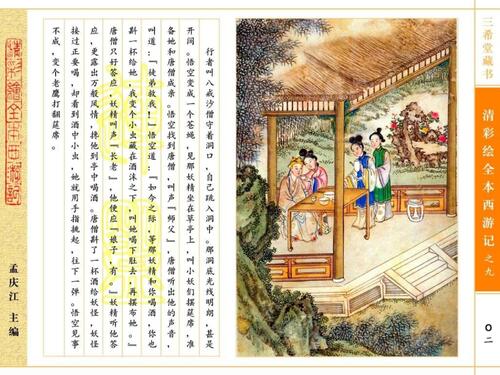 三希堂藏书
清彩绘全本西游记 之九
〇二
行者叫八戒沙僧守着洞口，自己跳入洞中。那洞底光线明朗，甚是
开阔。悟空变成一个苍蝇，见那妖精坐在草亭上，叫小妖们摆筵席，准
备她和唐僧成亲。悟空找到唐僧，叫声「师父」，唐僧听出他的声音，
叫道：「徒弟救我！」悟空道：「如今之际，等那妖精和你喝酒，你也
斟一杯给她，我变个小虫藏在酒沫之下，叫她喝下肚去，再摆布她。」
唐僧只好答应，妖精叫声「长老」，他便应「娘子，有。」妖精听他答
应，更露出万般风情，挽他到亭中喝酒。唐僧斟了一杯酒给妖怪，妖怪
接过正要喝，却看到酒中小虫，她就用手指挑起，往下一弹。悟空见事
不成，变个老鹰打翻筵席。
清彩绘全本西游记
孟庆江 主编